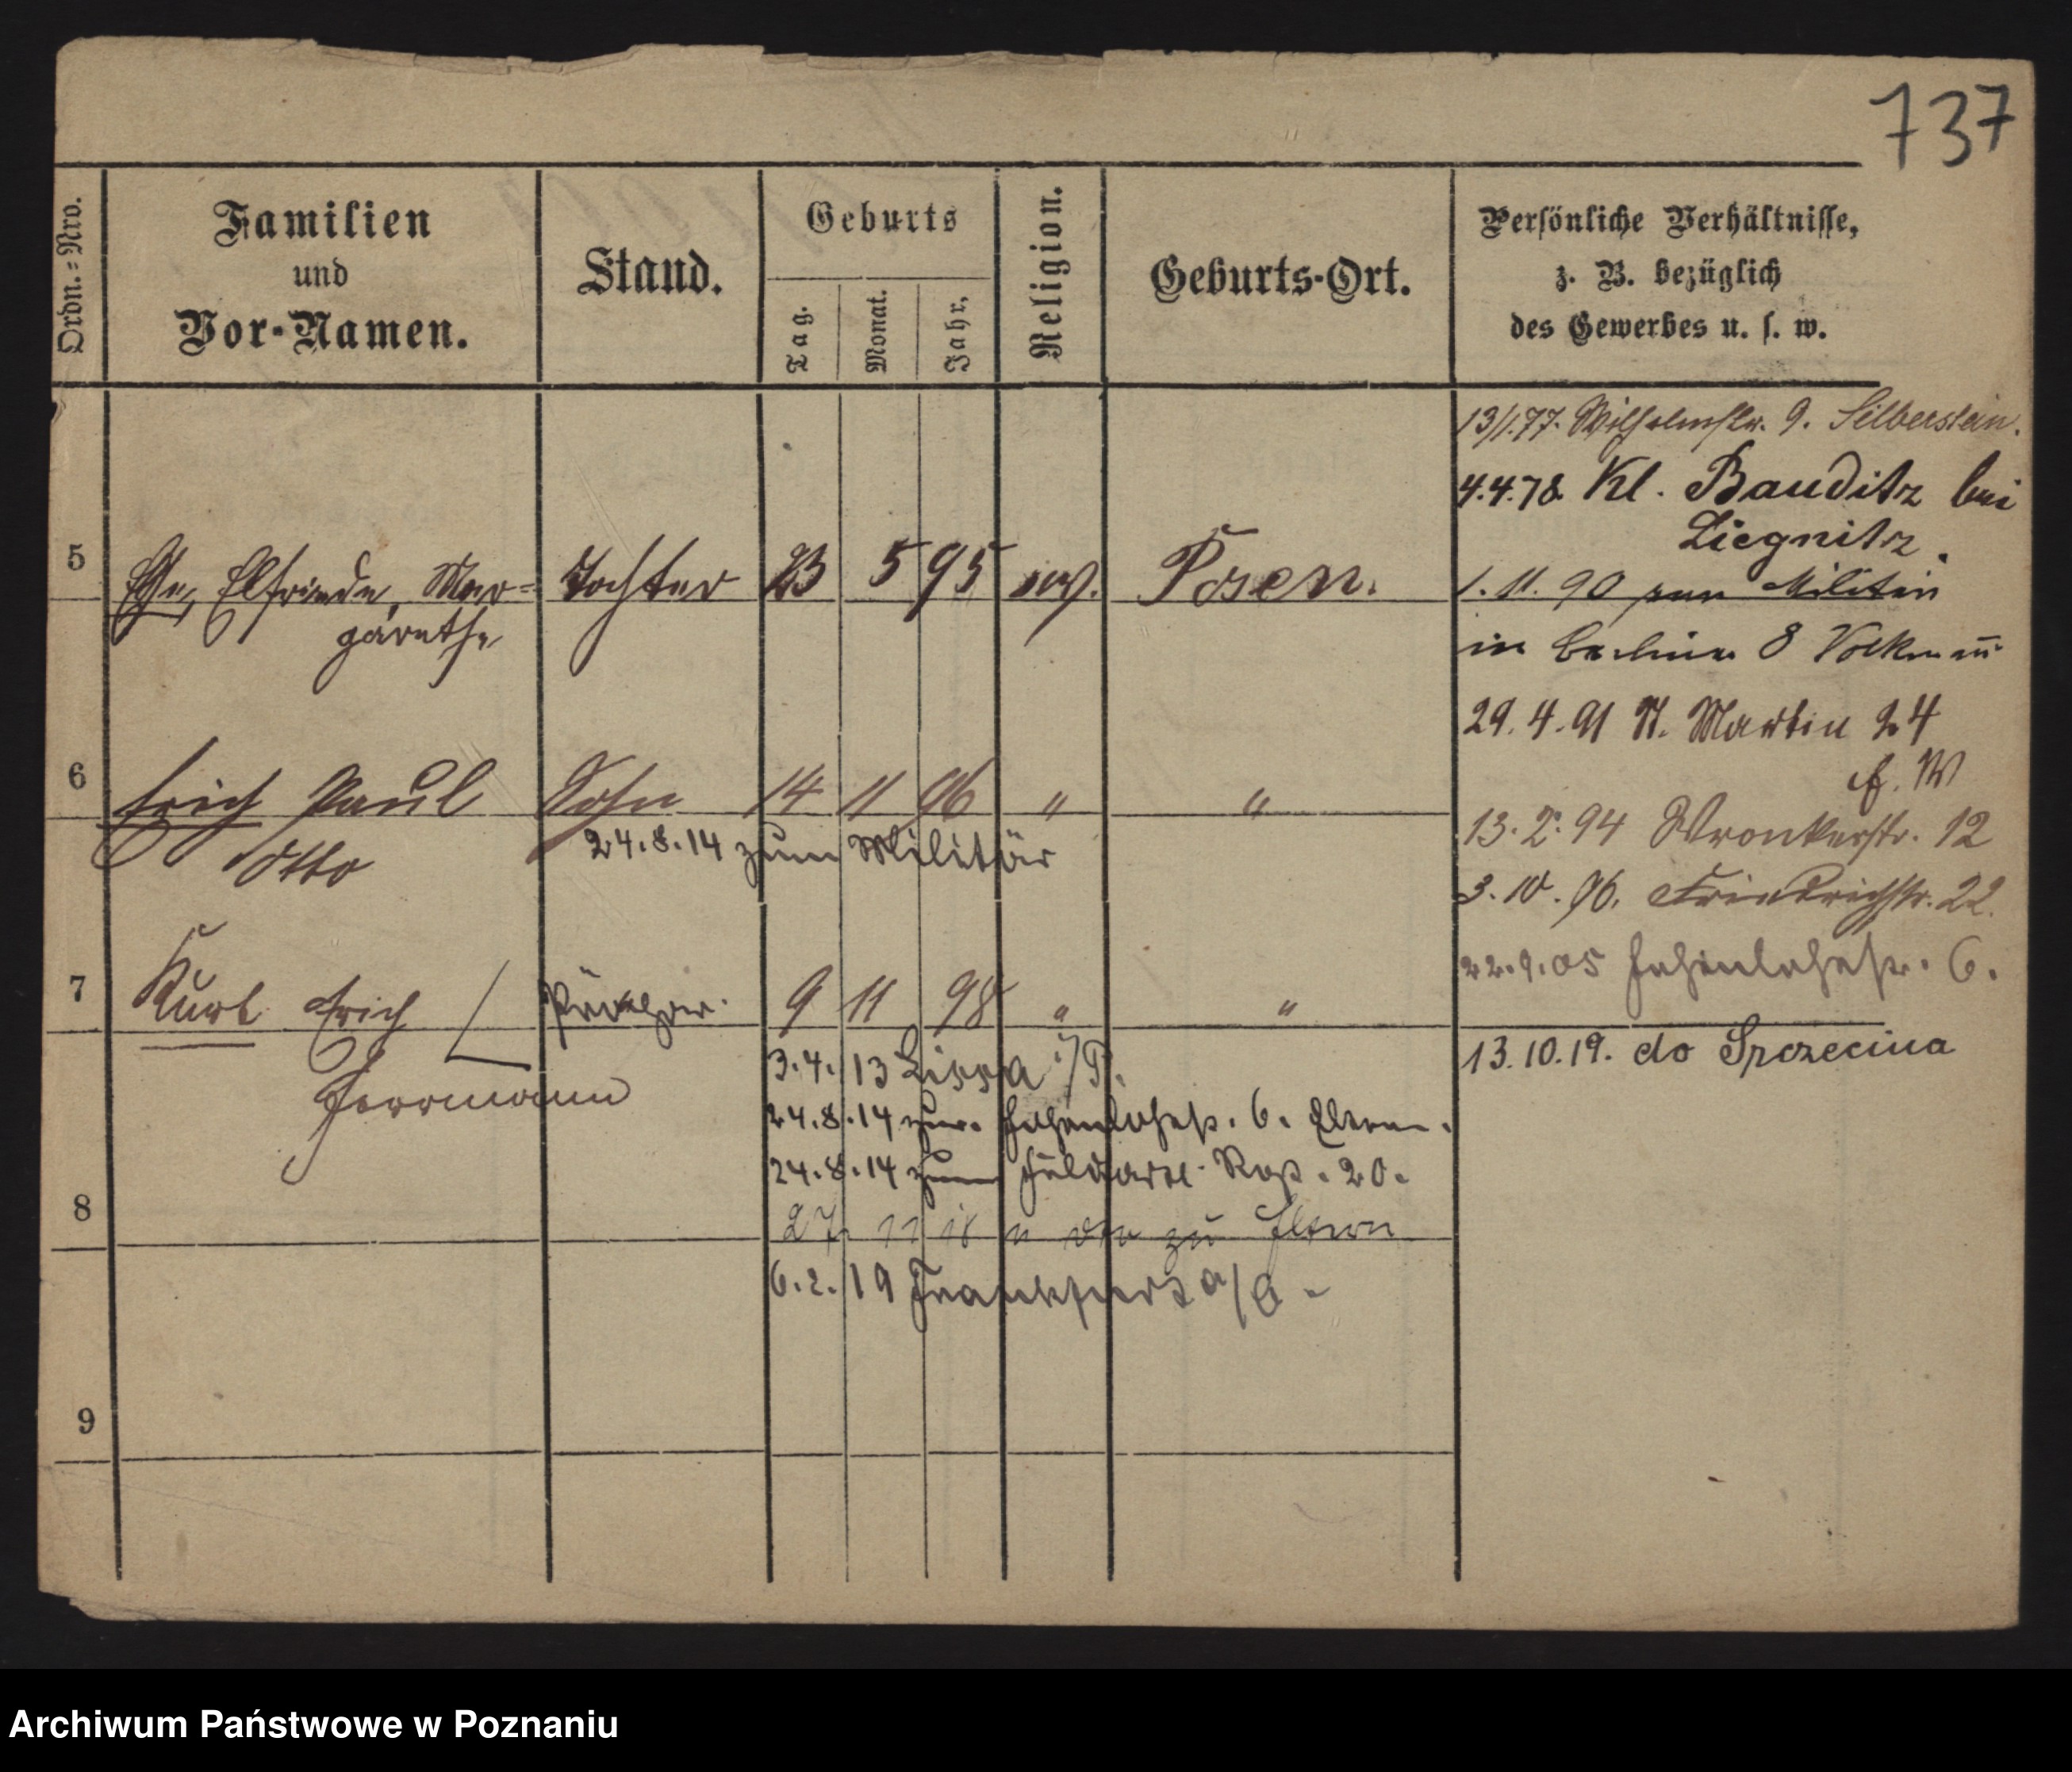 737
Ordn.=Nro.
Familien
und
Vor-Namen.
Stand.
Geburts
Tag.
Monat.
Jahr.
Religion.
Geburts-Ort.
Persönliche Verhältnisse,
z. B. bezüglich
des Gewerbes u. s. w.
13/1.77. Wilhelmstr. 9. Silberstein.
4.4.78 Kl. Bauditz bei
Liegnitz.
5 Elfriede, Mar=
garethe
Tochter 23 5 95 ev. Posen.
1. 11. 90 zum Militär
in Berlin 8 Volkmann
29. 4. 91 St. Martin 24
f. W
6 Erich Paul
Otto
Sohn 14 11 96 " "
24.8.14 zum Militär
13. 2. 94 Wronkerstr. 12
3. 10. 96. Friedrichstr. 22.
22.9.05 Hohenlohestr. 6.
7 Kurt Erich
Herrmann
9 11 98 " "
13.10.19. do Szczecina
3.4.13 Lissa i/P.
24.8.14 zur. Hohenlohestr. 6. Eltern.
24.8.14 zum Feldart. Reg. 20.
8
27 11 18 zu Eltern
6.2.19 Frankfurt a/O.
9
Archiwum Państwowe w Poznaniu